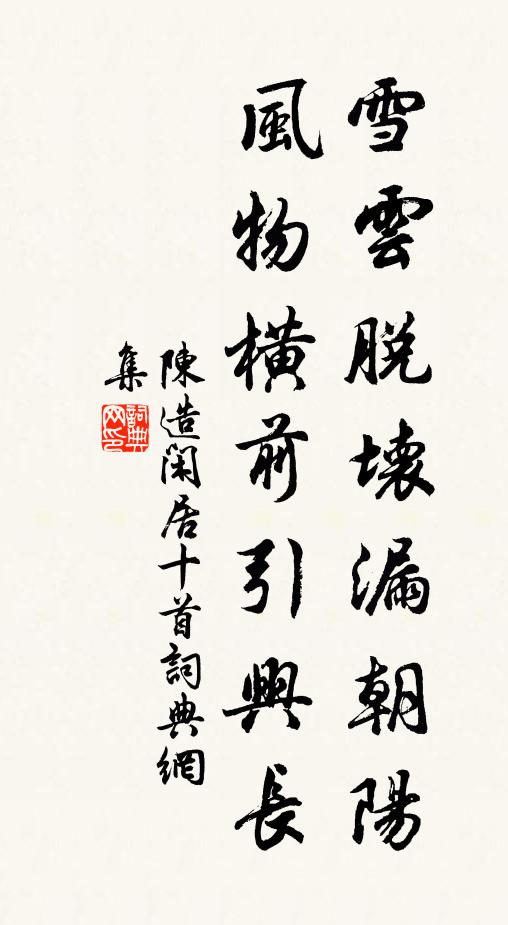 雪雲脫壞漏朝陽
風物橫前引興長
陳造閑居十首詞典網
集
詞典
网印